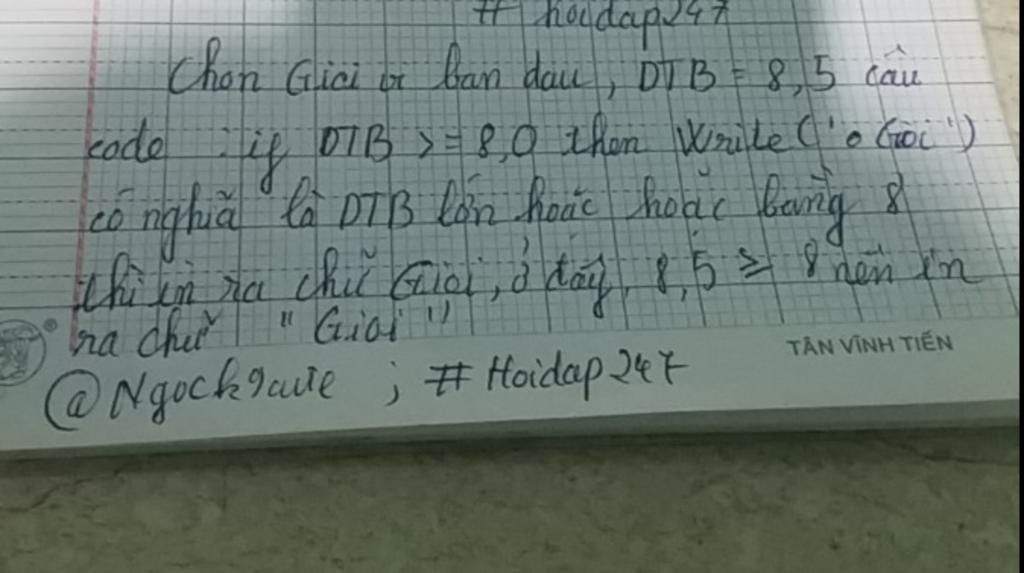 # hoidap247
Chon Giỏi vì ban dau, DTB = 8,5 câu
code : if DTB >= 8,0 then Write ('Gioi')
có nghĩa là DTB lớn hoặc hoặc bằng 8
thì in ra chữ Giỏi, ở đây, 8,5 ≥ 8 nên in
ra chữ "Giỏi"
TÂN VĨNH TIẾN
@Ngock9cute ; # Hoidap247